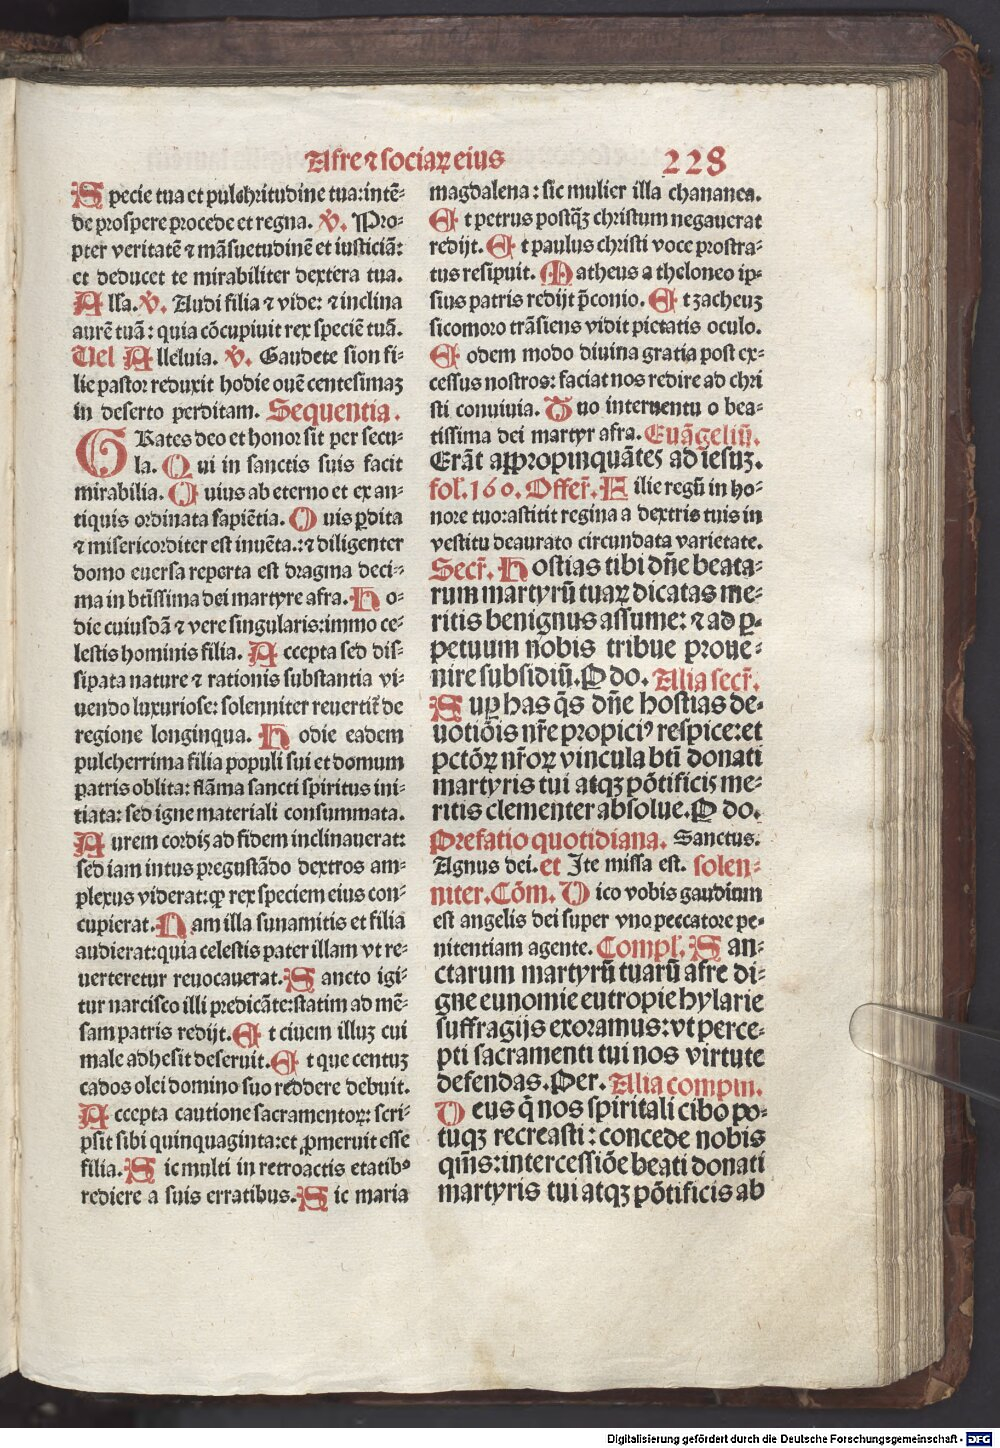 Afre ⁊ sociaꝝ eius 228
Specie tua et pulchritudine tua: intē⸗
de prospere procede et regna. ℣. Pro⸗
pter veritatē ⁊ māsuetudinē et iusticiā:
et deducet te mirabiliter dextera tua.
Alla. ℣. Audi filia ⁊ vide: ⁊ inclina
aurē tuā: quia cōcupiuit rex speciē tuā.
Uel Alleluia. ℣. Gaudete sion fi⸗
lie pastor reduxit hodie ouē centesimaꝫ
in deserto perditam. Sequentia.
GRates deo et honor sit per secu⸗
la. Qui in sanctis suis facit
mirabilia. Cuius ab eterno et ex an⸗
tiquis ordinata sapiētia. Ouis ꝑdita
⁊ misericorditer est inuēta.: ⁊ diligenter
domo euersa reperta est dragma deci⸗
ma in btīssima dei martyre afra. Ho⸗
die cuiusdā ⁊ vere singularis: immo ce⸗
lestis hominis filia. Accepta sed dis⸗
sipata nature ⁊ rationis substantia vi⸗
uendo luxuriose: solenniter reuertit᷑ de
regione longinqua. Hodie eadem
pulcherrima filia populi sui et domum
patris oblita: flāma sancti spiritus ini⸗
tiata: sed igne materiali consummata.
Aurem cordis ad fidem inclinauerat:
sed iam intus pregustādo dextros am⸗
plexus viderat: ꝙ rex speciem eius con⸗
cupierat. Nam illa sunamitis et filia
audierat: quia celestis pater illam vt re⸗
uerteretur reuocauerat. Sancto igi⸗
tur narcisco illi predicāte: statim ad mē⸗
sam patris redijt. Et ciuem illuꝫ cui
male adhesit deseruit. Et que centuꝫ
cados olei domino suo reddere debuit.
Accepta cautione sacramentoꝝ: scri⸗
psit sibi quinquaginta: et ꝓmeruit esse
filia. Sic multi in retroactis etatibꝰ
rediere a suis erratibus. Sic maria
magdalena: sic mulier illa chananea.
Et petrus postqꝫ christum negauerat
redijt. Et paulus christi voce prostra⸗
tus resipuit. Matheus a theloneo ip⸗
sius patris redijt p̄conio. Et zacheuꝫ
sicomoro trāsiens vidit pietatis oculo.
Eodem modo diuina gratia post ex⸗
cessus nostros: faciat nos redire ad chri
sti conuiuia. Tuo interuentu o bea⸗
tissima dei martyr afra. Euāgeliū.
Erāt appropinquātes ad iesuꝫ.
fol. 160. Offer̄. Filie regū in ho⸗
nore tuo: astitit regina a dextris tuis in
vestitu deaurato circundata varietate.
Secr̄. Hostias tibi dn̄e beata⸗
rum martyrū tuaꝝ dicatas me⸗
ritis benignus assume: ⁊ ad ꝑ⸗
petuum nobis tribue proue⸗
nire subsidiū. P do. Alia secr̄.
Suꝑ has q̄s dn̄e hostias de⸗
uotiōis nr̄e propiciꝰ respice: et
pctōꝝ nr̄oꝝ vincula btī donati
martyris tui atqꝫ pōtificis me⸗
ritis clementer absolue. P do.
Prefatio quotidiana. Sanctus.
Agnus dei. et Ite missa est. solen⸗
niter. Cōm. Dico vobis gaudium
est angelis dei super vno peccatore pe⸗
nitentiam agente. Compl̄. San⸗
ctarum martyrū tuarū afre di⸗
gne eunomie eutropie hylarie
suffragijs exoramus: vt perce⸗
pti sacramenti tui nos virtute
defendas. Per. Alia compln̄.
Deus q̄ nos spiritali cibo po⸗
tuqꝫ recreasti: concede nobis
qm̄s: intercessiōe beati donati
martyris tui atqꝫ pōtificis ab
Digitalisierung gefördert durch die Deutsche Forschungsgemeinschaft - DFG